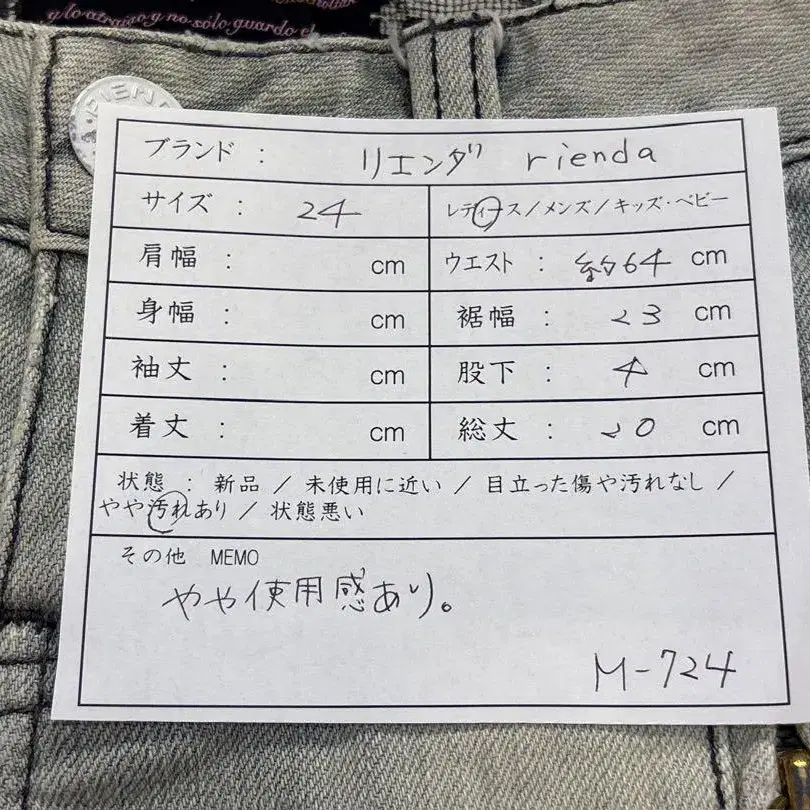 y lo atraiso y no sólo guardo el
RIEN
ブランド : リエンダ rienda
サイズ : 24 レディース/メンズ/キッズ・ベビー
肩幅 : cm ウエスト : 約64 cm
身幅 : cm 裾幅 : 23 cm
袖丈 : cm 股下 : 4 cm
着丈 : cm 総丈 : 20 cm
状態 : 新品 / 未使用に近い / 目立った傷や汚れなし /
やや汚れあり / 状態悪い
その他 MEMO
やや使用感あり。
M-724